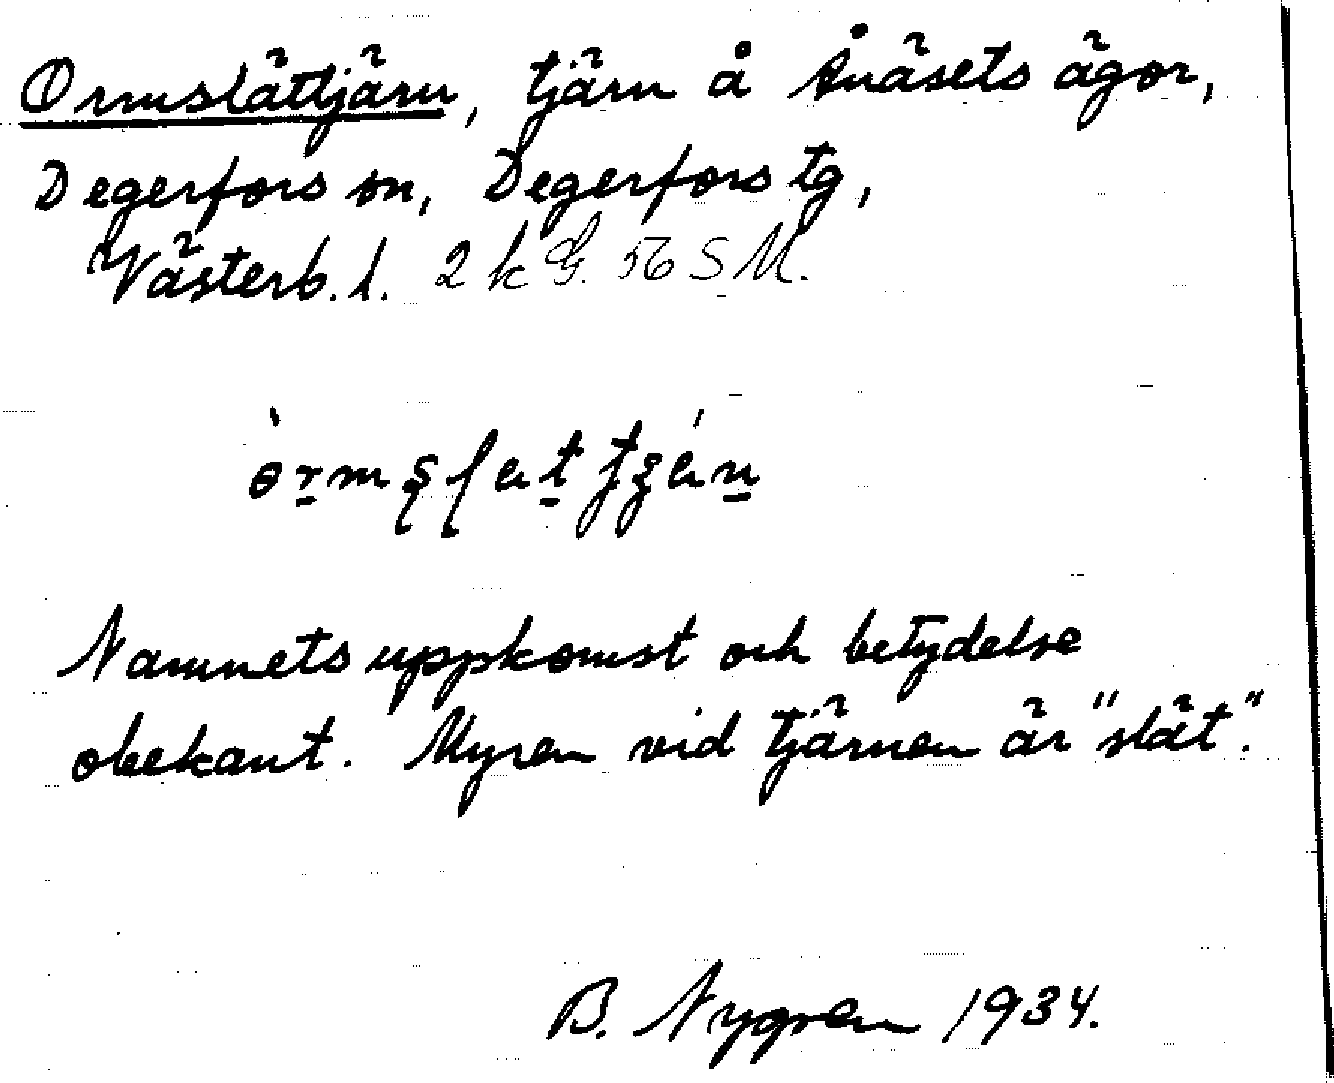 Ormslättjärn, tjärn å Ånäsets ägor,
Degerfors sn, Degerfors tg,
Västerb. l. 2 k G. 56 S M.
Namnets uppkomst och betydelse
obekant. Myren vid tjärnen är "slät".
B. Nygren 1934.